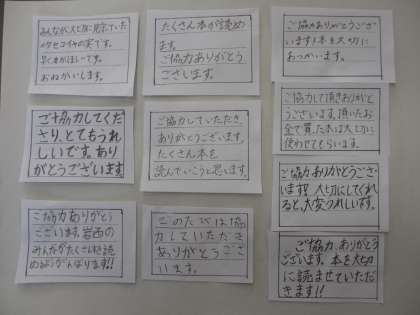 たくさん本が読め
ます。
ご協力ありがとう
ございます。
ご協力ありがとうござ
います!本を大切に
おねがいします。
ご協力してくだ
さり、とてもうれ
しいです。あり
がとうございます
ご協力していただき
ありがとうございます。
たくさん本を
読んでいこうと思います。
ご協力して頂きありがと
うございます。頂いたお
金で買った本は大切に
使わせてもらいます。
ご協力ありがとうござ
います!大切にしてくれ
ると、大変うれしいです。
ご協力ありがとう
ございます。
みんながたくさん本を読
めるようがんばります!!
このたびは協
力していただき
ありがとうござ
います。
ご協力ありがとう
ございます。本を大切
に読ませていただ
きます!!